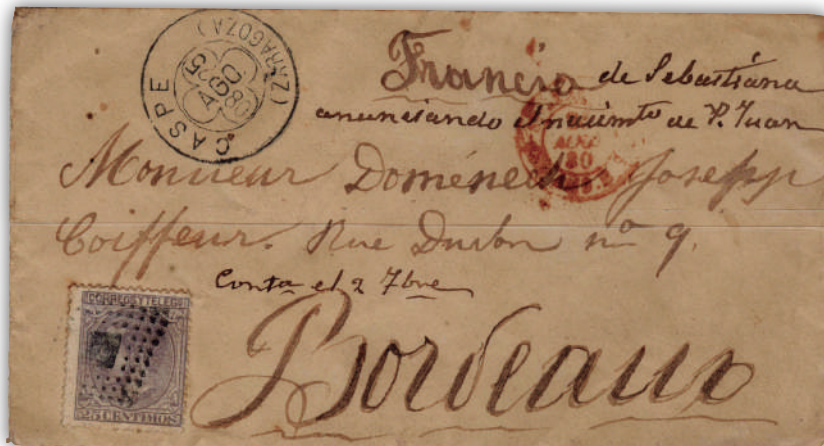 CASPE
(ZARAGOZA)
25
AGO
80
Francia de Sebastiana
anunciando el nacimto de P. Juan
80
Monsieur Doménech Joseph
Coiffeur. Rue Durbon nº 9.
Contª el 2 7bre
CORREOS Y TELEGS
25 CENTIMOS
Bordeaux